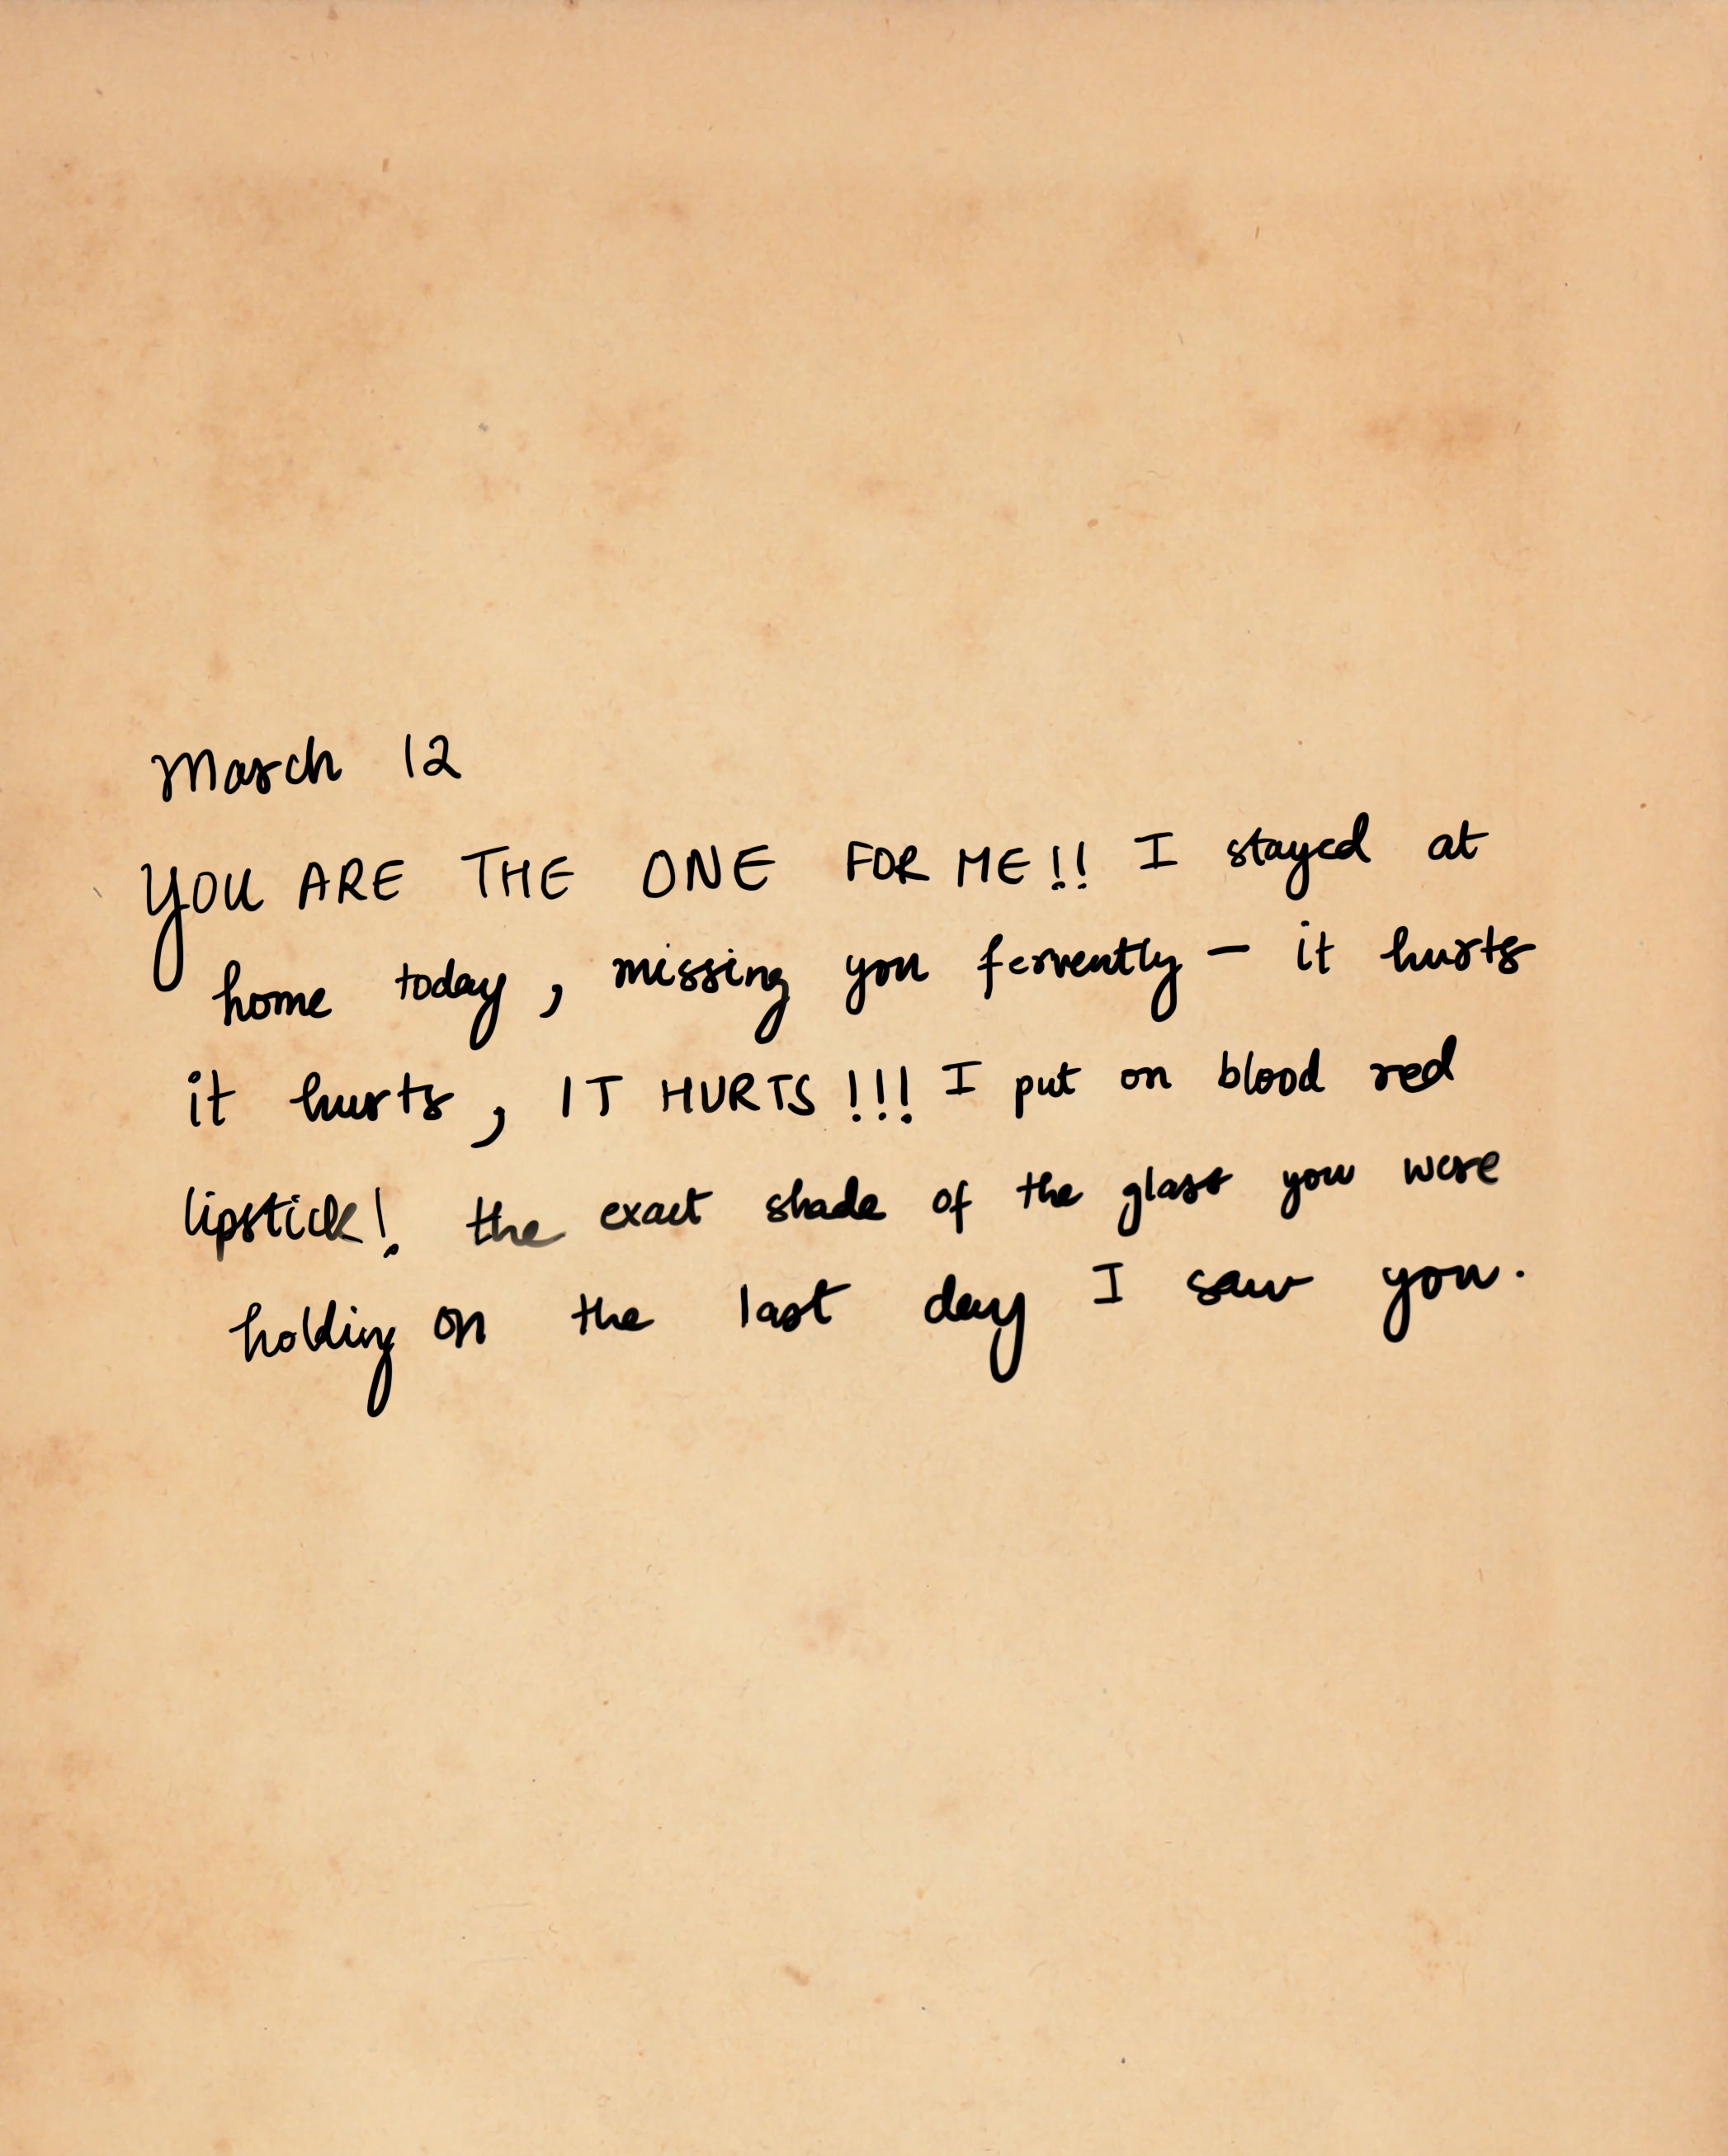 March 12
YOU ARE THE ONE FOR ME!! I stayed at
home today, missing you fervently – it hurts
it hurts, IT HURTS!!! I put on blood red
lipstick! the exact shade of the glass you were
holding on the last day I saw you.